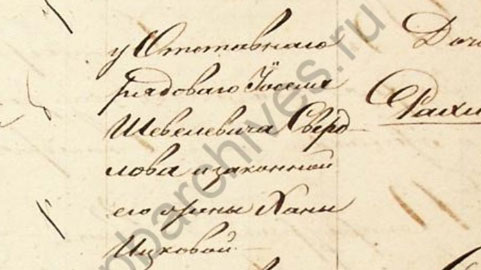 у Отставнаго
рядоваго Іоселя
Шевелевича Сверд
лова и законной
его жены Ханы
Ицковой
Дочь
Рахи
spbarchives.ru